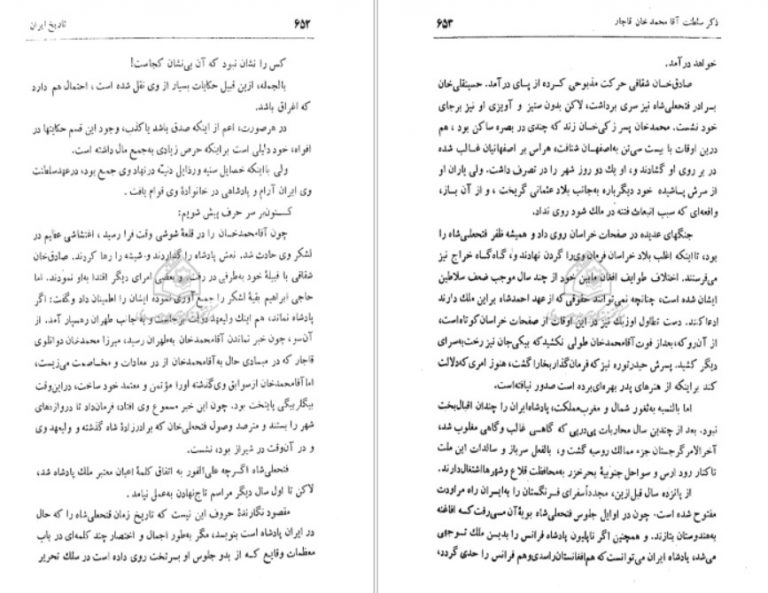 تاریخ ایران
۶۵۲
کس را نشان نبود که آن بی‌نشان کجاست!
بالجمله، ازین قبیل حکایات بسیار از وی نقل شده است، احتمال هم دارد
که اغراق باشد.
در هرصورت، اعم از اینکه صدق باشد یاکذب، وجود این قسم حکایتها در
افواه، خود دلیلی است براینکه حرص زیادی به‌جمع مال داشته است.
ولی بااینکه خصایل سنیه ورذایل دنیه درنهاد وی جمع بود، درعهدسلطنت
وی ایران آرام و پادشاهی در خانوادۀ وی قوام یافت.
کنون‌بر سر حرف پیش شویم:
چون آقامحمدخان را در قلعۀ شوشی وقت فرا رسید، اغتشاشی عظیم در
لشکر وی حادث شد. نعش پادشاه را گذاردند و شیشه را رها کردند. صادق‌خان
شقاقی با قبیلۀ خود به‌طرفی رفت، و بعضی امرای دیگر اقتدا به‌او نمودند. اما
حاجی ابراهیم بقیۀ لشکر را جمع‌آوری نموده ایشان را اطمینان داد وگفت: اگر
پادشاه نماند، هم اینک ولیعهد دولت برجاست و به جانب طهران رهسپار آمد. از
آن‌سو، چون خبر نماندن آقامحمدخان به‌طهران رسید، میرزا محمدخان دوانلوی
قاجار که در مبادی حال به‌آقامحمدخان از در معادات و مخاصمت می‌زیست،
اماآقامحمدخان ازسوابق وی‌گذشته اورا مؤتمن و معتمد خود ساخت، دراین‌وقت
بیگلربیگی پایتخت بود. چون این خبر مسموع وی افتاد، فرمان‌داد تا دروازه‌های
شهر را بستند و مترصد وصول فتحعلی‌خان که برادرزادۀ شاه گذشته و ولیعهد وی
و در آن‌وقت در شیراز بود، نشست.
فتحعلی‌شاه اگرچه علی‌الفور به اتفاق کلمۀ اعیان معتبر ملک پادشاه شد،
لاکن تا اول سال دیگر مراسم تاج‌نهادن به‌عمل نیامد.
مقصود نگارندۀ حروف این نیست که تاریخ زمان فتحعلی‌شاه را که حال
در ایران پادشاه است بنویسد، مگر به‌طور اجمال و اختصار چند کلمه‌ای در باب
معظمات وقایع که از بدو جلوس او برتخت روی داده است در سلک تحریر
ذکر سلطنت آقا محمد خان قاجار
۶۵۳
خواهد درآمد.
صادق‌خان شقاقی حرکت مذبوحی کرده از پای درآمد. حسینقلی‌خان
برادر فتحعلی‌شاه نیز سری برداشت، لاکن بدون ستیز و آویزی او نیز برجای
خود نشست. محمدخان پسر زکی‌خان زند که چندی در بصره ساکن بود، هم
درین اوقات با بیست سی‌تن به‌اصفهان شتافت، هراس بر اصفهانیان غالب شده
در بر روی او گشادند و، او یک دو روز شهر را در تصرف داشت. ولی یاران او
از سرش پاشیده خود دیگرباره به‌جانب بلاد عثمانی گریخت، و از آن باز،
واقعه‌ای که سبب انبعاث فتنه در ملک شود روی نداد.
جنگهای عدیده در صفحات خراسان روی داد و همیشه ظفر فتحعلی‌شاه را
بود، تااینکه اغلب بلاد خراسان فرمان وی‌را گردن نهادند و، گاه‌گاه خراج نیز
می‌فرستند. اختلاف طوایف افغان مابین خود از چند سال موجب ضعف سلاطین
ایشان شده است، چنانچه نمی‌توانند حقوقی‌که از عهد احمدشاه براین ملک دارند
ادعاکنند. دست تطاول اوزبک نیز در این اوقات از صفحات خراسان کوتاه‌است،
از آن‌رو‌که، بعداز فوت آقامحمدخان طولی نکشیدکه بیکی‌جان نیز رخت‌به‌سرای
دیگر کشید. پسرش حیدرتوره نیز که‌فرمان‌گذار بخارا گشت، هنوز امری که‌دلالت
کند براینکه از هنرهای پدر بهره‌ای‌برده است صدور نیافته‌است.
اما بالنسبه به‌ثغور شمال و مغرب‌مملکت، پادشاه‌ایران را چندان اقبال‌بخت
نبود. بعد از چندین سال محاربات پی‌درپی که گاهی غالب وگاهی مغلوب شد،
آخرالامر گرجستان جزء ممالک روسیه گشت و، بالفعل سرباز و سالدات این ملت
تاکنار رود ارس و سواحل جنوبیۀ بحرخزر به‌محافظت قلاع وشهرها اشتغال‌دارند.
از پانزده سال قبل‌ازین، مجدداًسفرای فرنگستان را به‌ایران راه مراودت
مفتوح شده است. چون در اوایل جلوس فتحعلی‌شاه بویۀ آن می‌رفت که افاغنه
به‌هندوستان بتازند. و همچنین اگر ناپلیون پادشاه فرانس را بدین ملک توجهی
می‌شد، پادشاه ایران می‌توانست‌که هم‌افغانستان راسدی‌وهم فرانس را حدی گردد،